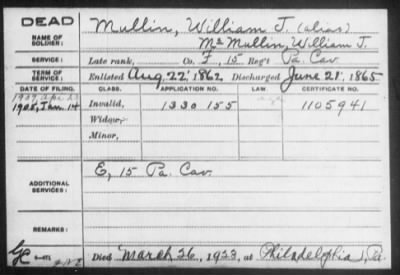 DEAD
NAME OF SOLDIER:
Mullin, William J. (alias)
Mc Mullin, William J.
SERVICE:
Late rank, Co. F, 15 Reg't Pa. Cav.
TERM OF SERVICE:
Enlisted Aug 22, 1862, Discharged June 21, 1865
DATE OF FILING. CLASS. APPLICATION NO. LAW. CERTIFICATE NO.
1905, Jan. 14 Invalid, 1330 155 1105941
Widow,
Minor,
ADDITIONAL SERVICES:
E, 15 Pa. Cav.
REMARKS:
Died March 26, 1933, at Philadelphia, Pa.